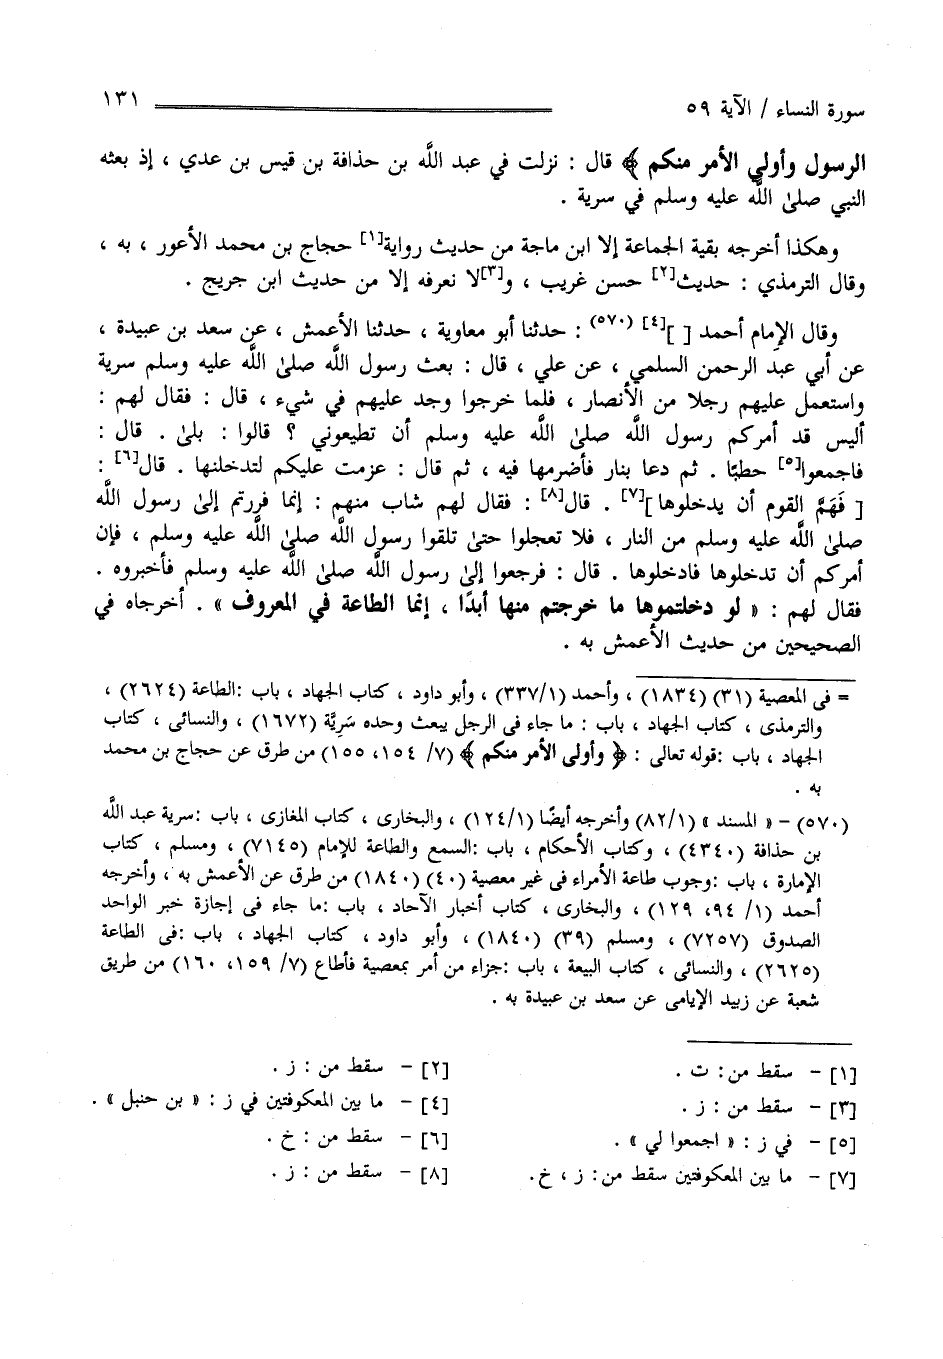 سورة النساء / الآية ٥٩ ١٣١
الرسول وأولي الأمر منكم ﴾ قال : نزلت في عبد اللَّه بن حذافة بن قيس بن عدي ، إذ بعثه
النبي صلىٰ اللَّه عليه وسلم في سرية .
وهكذا أخرجه بقية الجماعة إلا ابن ماجة من حديث رواية[١] حجاج بن محمد الأعور ، به ،
وقال الترمذي : حديث[٢] حسن غريب ، و[٣]لا نعرفه إلا من حديث ابن جريج .
وقال الإمام أحمد [ ][٤] (٥٧٠) : حدثنا أبو معاوية ، حدثنا الأعمش ، عن سعد بن عبيدة ،
عن أبي عبد الرحمن السلمي ، عن علي ، قال : بعث رسول اللَّه صلىٰ اللَّه عليه وسلم سرية
واستعمل عليهم رجلا من الأنصار ، فلما خرجوا وجد عليهم في شيء ، قال : فقال لهم :
أليس قد أمركم رسول اللَّه صلىٰ اللَّه عليه وسلم أن تطيعوني ؟ قالوا : بلىٰ . قال :
فاجمعوا[٥] حطبًا . ثم دعا بنار فأضرمها فيه ، ثم قال : عزمت عليكم لتدخلنها . قال[٦] :
[ فَهَمَّ القوم أن يدخلوها ][٧] . قال[٨] : فقال لهم شاب منهم : إنما فررتم إلىٰ رسول اللَّه
صلىٰ اللَّه عليه وسلم من النار ، فلا تعجلوا حتىٰ تلقوا رسول اللَّه صلىٰ اللَّه عليه وسلم ، فإن
أمركم أن تدخلوها فادخلوها . قال : فرجعوا إلىٰ رسول اللَّه صلىٰ اللَّه عليه وسلم فأخبروه .
فقال لهم : « لو دخلتموها ما خرجتم منها أبدًا ، إنما الطاعة في المعروف » . أخرجاه في
الصحيحين من حديث الأعمش به .
= فى المعصية (٣١) (١٨٣٤) ، وأحمد (٣٣٧/١) ، وأبو داود ، كتاب الجهاد ، باب :الطاعة (٢٦٢٤) ،
والترمذى ، كتاب الجهاد ، باب : ما جاء فى الرجل يبعث وحده سَرِيَّة (١٦٧٢) ، والنسائى ، كتاب
الجهاد ، باب :قوله تعالى : ﴿ وأولى الأمر منكم ﴾ (٧/ ١٥٤، ١٥٥) من طرق عن حجاج بن محمد
به .
(٥٧٠) - « المسند » (٨٢/١) وأخرجه أيضًا (١٢٤/١) ، والبخارى ، كتاب المغازى ، باب :سرية عبد اللَّه
بن حذافة (٤٣٤٠) ، وكتاب الأحكام ، باب :السمع والطاعة للإمام (٧١٤٥) ، ومسلم ، كتاب
الإمارة ، باب :وجوب طاعة الأمراء فى غير معصية (٤٠) (١٨٤٠) من طرق عن الأعمش به ، وأخرجه
أحمد (١/ ٩٤، ١٢٩) ، والبخارى ، كتاب أخبار الآحاد ، باب :ما جاء فى إجازة خبر الواحد
الصدوق (٧٢٥٧) ، ومسلم (٣٩) (١٨٤٠) ، وأبو داود ، كتاب الجهاد ، باب :فى الطاعة
(٢٦٢٥) ، والنسائى ، كتاب البيعة ، باب :جزاء من أمر بمعصية فأطاع (٧/ ١٥٩، ١٦٠) من طريق
شعبة عن زبيد الإيامى عن سعد بن عبيدة به .
[١] - سقط من: ت . [٢] - سقط من : ز .
[٣] - سقط من : ز . [٤] - ما بين المعكوفتين في ز : « بن حنبل » .
[٥] - في ز : « اجمعوا لي » . [٦] - سقط من : خ .
[٧] - ما بين المعكوفتين سقط من: ز ، خ. [٨] - سقط من : ز .